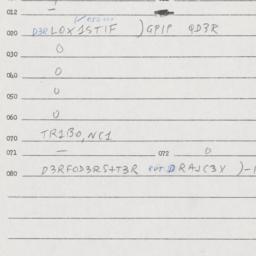 012 —
020 D3RLOX1STIF )GPIP QD3R
030 0
040 0
050 0
060 0
070 TR1BO,NC1
071 — 072 0
080 D3RFOD3RS+T3R PUT D RAJC3Y )-